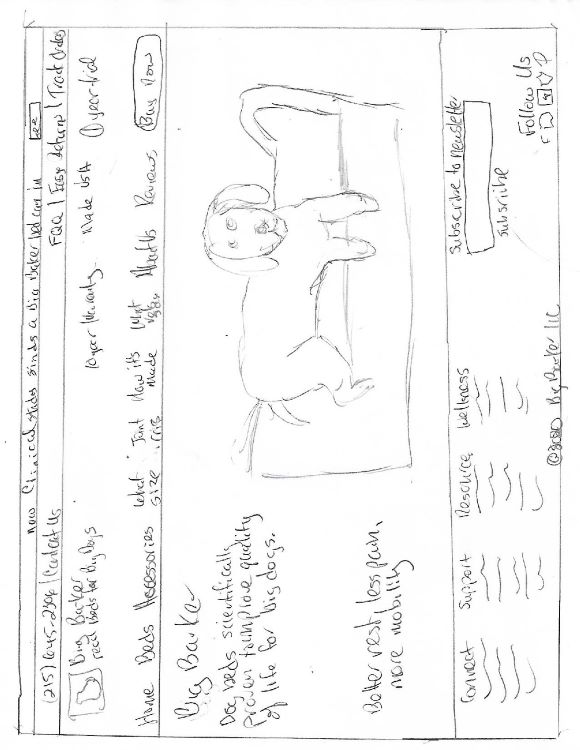 now Clinical studes finds a Big Baker bed can in
(215) 645-2304 | Contact Us
FQQ | Easy Returns | Track Orders
Big Barker
real Beds for Big Dogs
10 year Warranty
Made USA
1 year trial
Home Beds Accessories What size Joint How it's Made About Us Reviews Buy Now
Big Barker
Dog beds scientifically
proven to improve quality
of life for big dogs.
Better rest, less pain,
more mobility
Connect Support Resource Wellness
Subscribe to newsletter
Subscribe
Follow Us
©2020 Big Barker LLC